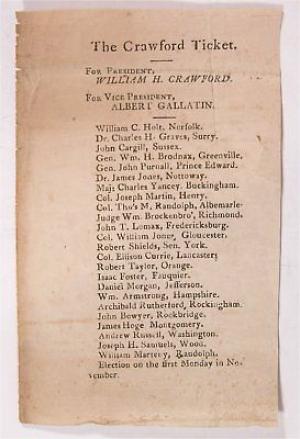 The Crawford Ticket.
FOR PRESIDENT,
WILLIAM H. CRAWFORD.
FOR VICE PRESIDENT,
ALBERT GALLATIN.
William C. Holt, Norfolk.
Dr. Charles H. Graves, Surry.
John Cargill, Sussex.
Gen. Wm. H. Brodnax, Greenville,
Gen. John Purnall, Prince Edward.
Dr. James Jones, Nottoway.
Maj. Charles Yancey, Buckingham.
Col. Joseph Martin, Henry.
Col. Tho's M. Randolph, Albemarle-
Judge Wm. Brockenbro', Richmond.
John T. Lomax, Fredericksburg.
Col. William Jones, Gloucester
Robert Shields, Sen. York.
Col. Ellison Currie, Lancaster,
Robert Taylor, Orange.
Isaac Foster, Fauquier.
Daniel Morgan, Jefferson.
Wm. Armstrong, Hampshire.
Archibald Rutherford, Rockingham.
John Bowyer, Rockbridge.
James Hoge Montgomery.
Andrew Russell, Washington.
Joseph H. Samuels, Wood.
William Marteny, Randolph.
Election on the first Monday in No-
vember.